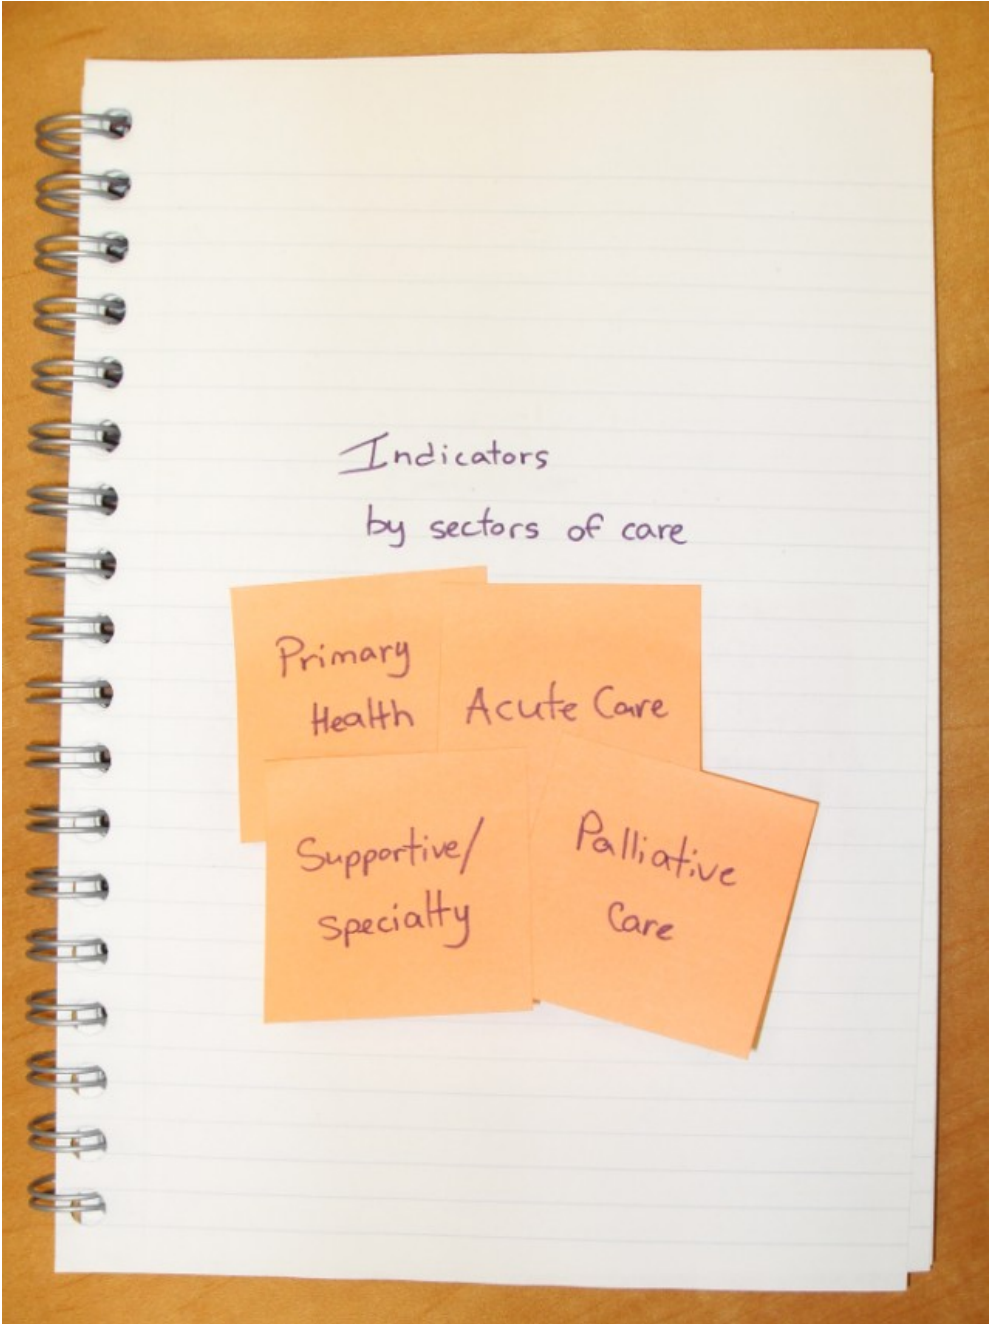 Indicators
by sectors of care
Primary
Health
Acute Care
Supportive/
specialty
Palliative
Care